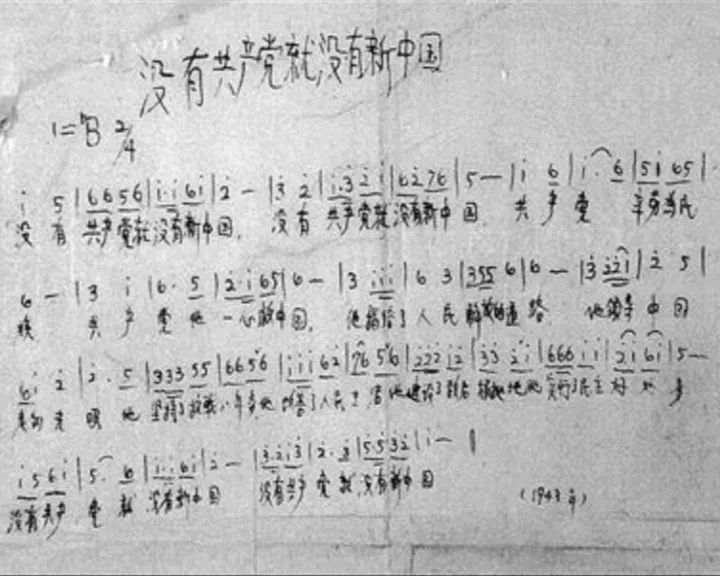 没有共产党就没有新中国
1=♭B 2/4
i 5 | 6 6 5 6 | i· i 6 i | 2 - | 3 2 | i· 3 2 i | 6 2 7 6 | 5 - | i 6 | i· 6 | 5 i 6 5 |
没有 共产党就没有新中国, 没有 共产党就没有新中国. 共产党 辛劳为民
6 - | 3 i | 6· 5 | 2· i 6 5 | 6 - | 3 i i i | 6 3 | 3 5 5 6 | 6 - | 3 i 2 i | 2 5 |
族 共产党他 一心救中国. 他指给了人民 解放的道路 他领导中国
6 i 2 | 2· 5 | 3 3 3 5 5 | 6 6 5 6 | i i i 6 2 | 7 6 5 6 | 2 2 2 i 2 | 3 3 2 i | 6 6 6 i i | 2 i 6 i | 5 -
走向光明 他 坚持了抗战八年多他 改善了人民生活他建设了敌后根据地他实行了民主好处多
i 5 6 i | 5· 6 | i· i 6 i | 2 - | 3· 2 i 3 | 2· 3 | 5· 5 3 2 | i - |
没有共产党就没有新中国 没有共产党就没有新中国
(1943年)